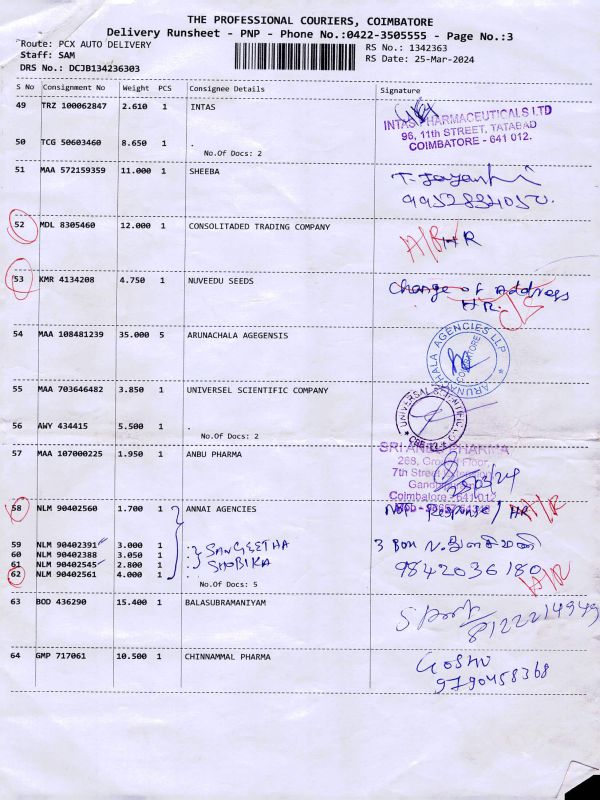 THE PROFESSIONAL COURIERS, COIMBATORE
Delivery Runsheet - PNP - Phone No.:0422-3505555 - Page No.:3
Route: PCX AUTO DELIVERY RS No.: 1342363
Staff: SAM RS Date: 25-Mar-2024
DRS No.: DCJB134236303
S No Consignment No Weight PCS Consignee Details Signature
49 TRZ 100062847 2.610 1 INTAS
INTAS PHARMACEUTICALS LTD
96, 11th STREET, TATABAD
COIMBATORE - 641 012.
50 TCG 50603460 8.650 1 .
No.Of Docs: 2
51 MAA 572159359 11.000 1 SHEEBA
52 MDL 8305460 12.000 1 CONSOLITADED TRADING COMPANY
A/R HR
53 KMR 4134208 4.750 1 NUVEEDU SEEDS
Change of Address
HR.
54 MAA 108481239 35.000 5 ARUNACHALA AGEGENSIS
ARUNACHALA AGENCIES LLP
COIMBATORE
55 MAA 703646482 3.850 1 UNIVERSEL SCIENTIFIC COMPANY
UNIVERSAL SCIENTIFIC
56 AWY 434415 5.500 1 .
No.Of Docs: 2
57 MAA 107000225 1.950 1 ANBU PHARMA
SRI ANBU PHARMA
7th Street
Coimbatore - 641 012
25/03/24
58 NLM 90402560 1.700 1 ANNAI AGENCIES
Not Response / HR A/R
59 NLM 90402391 3.000 1
60 NLM 90402388 3.050 1 SANGEETHA
61 NLM 90402545 2.800 1 SHOBIKA
62 NLM 90402561 4.000 1
No.Of Docs: 5
3 Box
9842036180
A/R
63 BOD 436290 15.400 1 BALASUBRAMANIYAM
8122214949
64 GMP 717061 10.500 1 CHINNAMMAL PHARMA
9790458368